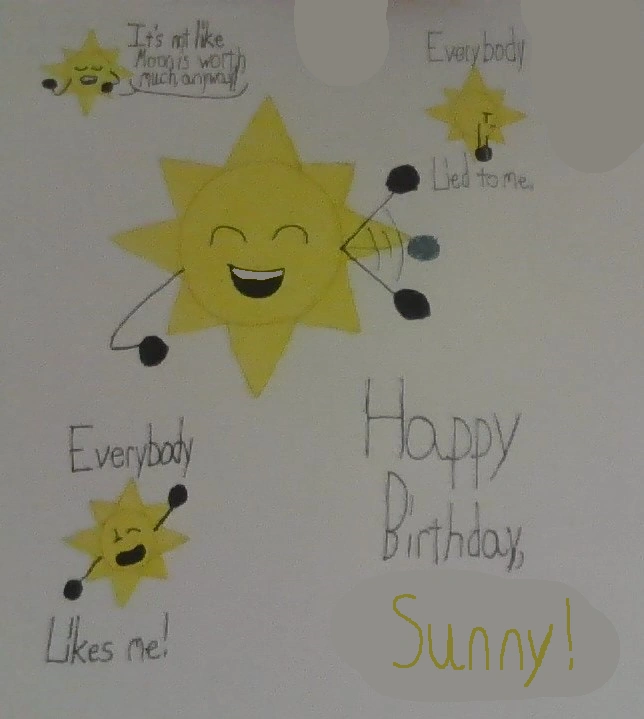 It's not like
Moon is worth
much anyway!
Everybody
Lied to me.
Everybody
Likes me!
Happy
Birthday,
Sunny!